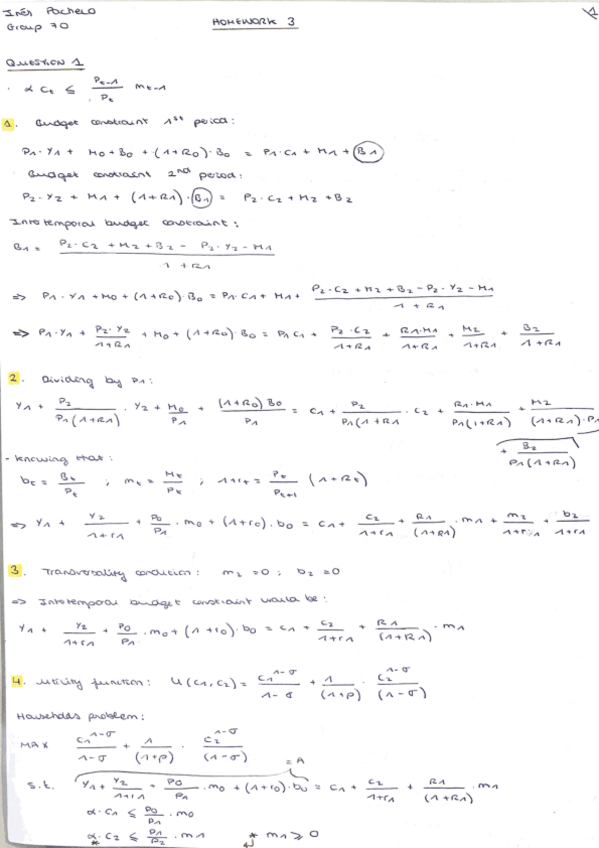 Inés Pacheco
Group 70
HOMEWORK 3
1
QUESTION 1
· α Ct ≤ Pt-1/Pt mt-1
1. Budget constraint 1st period:
P1·Y1 + M0+B0 + (1+R0)·B0 = P1·C1 + M1 + B1
Budget constraint 2nd period:
P2·Y2 + M1 + (1+R1)·B1 = P2·C2 + M2 + B2
Intotemporal budget constraint:
B1 = (P2·C2 + M2 + B2 - P2·Y2 - M1)/(1+R1)
=> P1·Y1 + M0 + (1+R0)·B0 = P1C1 + M1 + (P2·C2 + M2 + B2 - P2·Y2 - M1)/(1+R1)
=> P1·Y1 + P2·Y2/(1+R1) + M0 + (1+R0)·B0 = P1C1 + P2·C2/(1+R1) + R1·M1/(1+R1) + M2/(1+R1) + B2/(1+R1)
2. Dividing by P1:
Y1 + P2/(P1(1+R1)) · Y2 + M0/P1 + (1+R0)B0/P1 = C1 + P2/(P1(1+R1)) · C2 + R1·M1/(P1(1+R1)) + M2/((1+R1)·P1
+ B2/(P1(1+R1))
- Knowing that:
bt = Bt/Pt ; mt = Mt/Pt ; 1+rt = Pt/Pt+1 (1+Rt)
=> Y1 + Y2/(1+r1) + P0/P1 · m0 + (1+r0)·b0 = C1 + C2/(1+r1) + R1/(1+R1) · m1 + m2/(1+r1) + b2/(1+r1)
3. Transversality condition: m2 = 0 ; b2 = 0
=> Intotemporal budget constraint would be:
Y1 + Y2/(1+r1) + P0/P1 · m0 + (1+r0)·b0 = C1 + C2/(1+r1) + R1/(1+R1) · m1
4. Utility function: U(C1,C2) = C1^(1-σ)/(1-σ) + 1/(1+ρ) · C2^(1-σ)/(1-σ)
Households problem:
MAX C1^(1-σ)/(1-σ) + 1/(1+ρ) · C2^(1-σ)/(1-σ)
= A
s.t. Y1 + Y2/(1+r1) + P0/P1 · m0 + (1+r0)·b0 = C1 + C2/(1+r1) + R1/(1+R1) · m1
α·C1 ≤ P0/P1 · m0
α·C2 ≤ P1/P2 · m1 * m1 ≥ 0
*